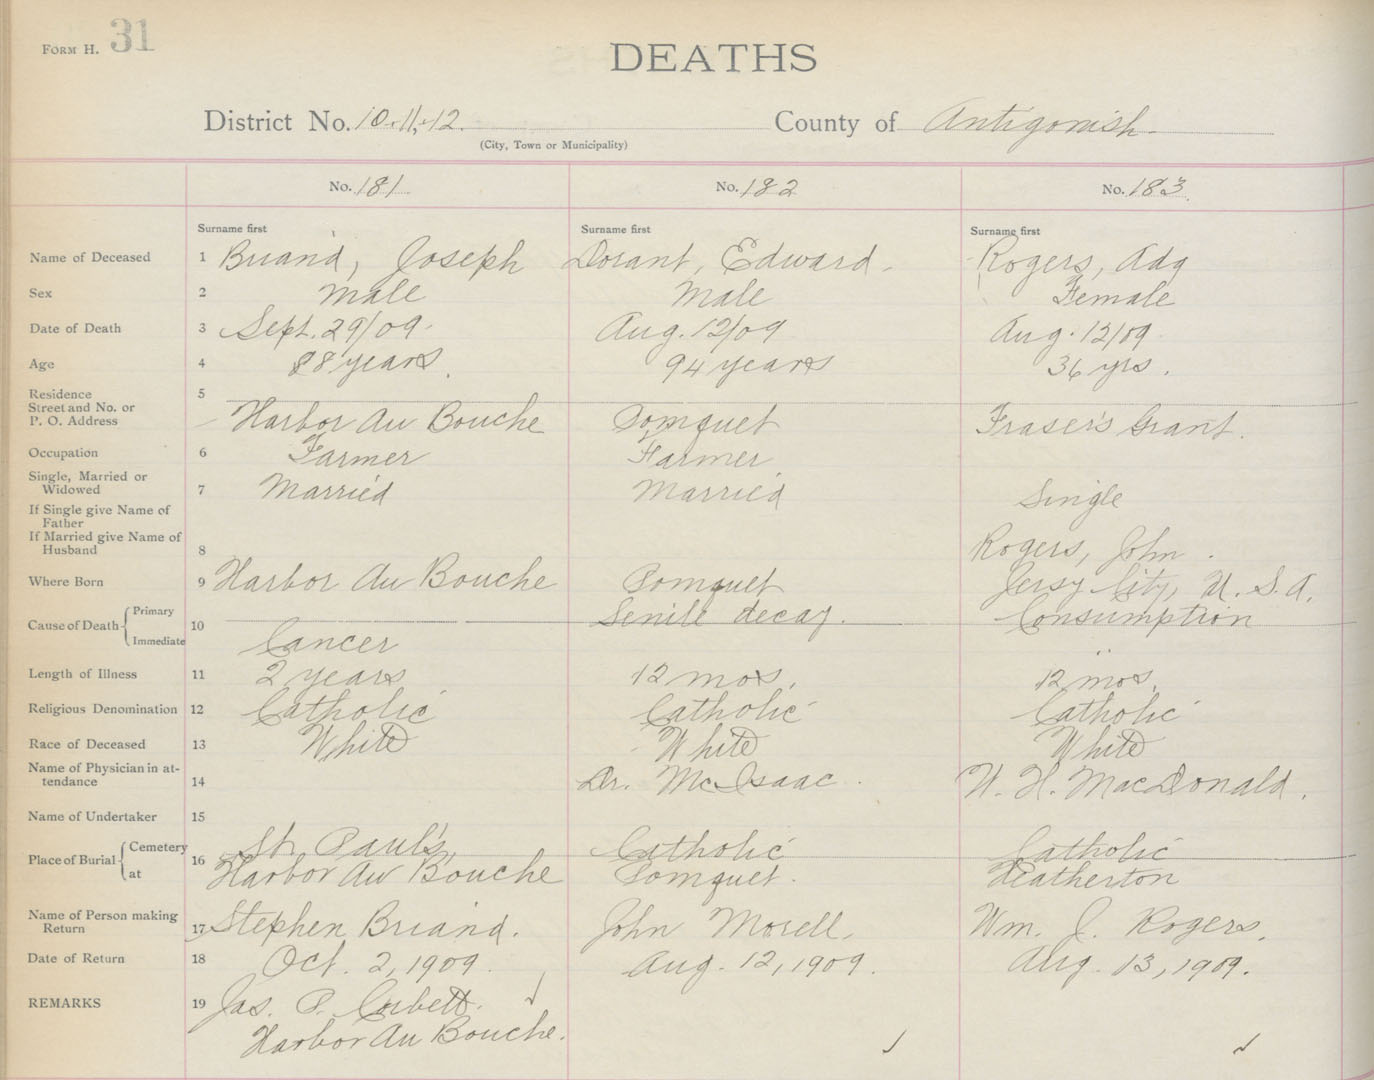 FORM H. 31
DEATHS
District No. 10, 11, + 12. County of Antigonish
(City, Town or Municipality)
No. 181 No. 182 No. 183
Surname first Surname first Surname first
Name of Deceased 1 Briand, Joseph Dorant, Edward. Rogers, Ada
Sex 2 Male Male Female
Date of Death 3 Sept. 29/09. Aug. 12/09 Aug. 12/09.
Age 4 88 years. 94 years 36 yrs.
Residence 5
Street and No. or
P. O. Address Harbor Au Bouche Pomquet Fraser's Grant.
Occupation 6 Farmer Farmer
Single, Married or
Widowed 7 Married Married Single
If Single give Name of
Father
If Married give Name of
Husband 8 Rogers, John.
Where Born 9 Harbor Au Bouche Pomquet Jersy City, U. S. A.
Cause of Death Primary Senile decay. Consumption
10
Immediate Cancer
Length of Illness 11 2 years 12 mos. 12 mos.
Religious Denomination 12 Catholic Catholic Catholic
Race of Deceased 13 White White White
Name of Physician in at-
tendance 14 Dr. McIsaac. W. H. MacDonald.
Name of Undertaker 15
Place of Burial Cemetery 16 St. Paul's, Catholic Catholic
at Harbor Au Bouche Pomquet. Heatherton
Name of Person making
Return 17 Stephen Briand. John Morell, Wm. J. Rogers.
Date of Return 18 Oct. 2, 1909. Aug. 12, 1909. Aug. 13, 1909.
REMARKS 19 Jas. P. Corbett.
Harbor Au Bouche.